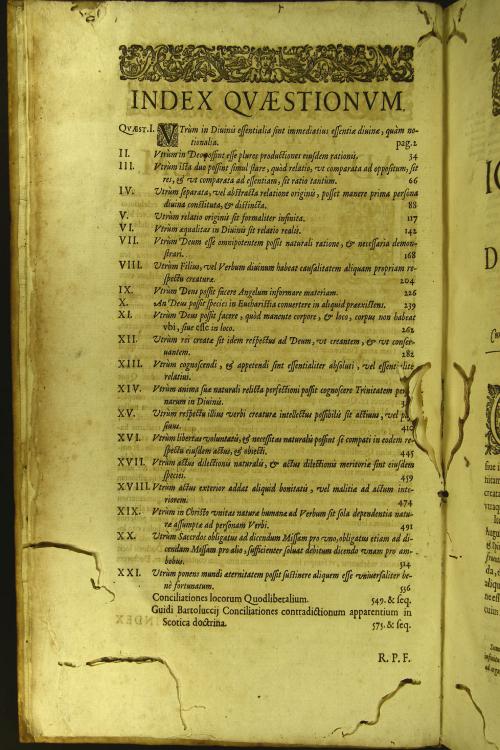 INDEX QVÆSTIONVM.
QVÆST.I. VTrùm in Diuinis essentialia sint immediatius essentiæ diuinæ, quàm no-
tionalia. pag.2
II. Vtrùm in Deo possint esse plures productiones eiusdem rationis. 34
III. Vtrùm ista duo possint simul stare, quòd relatio, vt comparata ad oppositum, sit
res, & vt comparata ad essentiam, sit ratio tantùm. 66
IV. Vtrùm separata, vel abstracta relatione originis, posset manere prima persona
diuina constituta, & distincta. 88
V. Vtrùm relatio originis sit formaliter infinita. 117
VI. Vtrùm æqualitas in Diuinis sit relatio realis. 142
VII. Vtrùm Deum esse omnipotentem possit naturali ratione, & necessaria demon-
strari. 168
VIII. Vtrùm Filius, vel Verbum diuinum habeat causalitatem aliquam propriam re-
spectu creaturæ. 204
IX. Vtrùm Deus possit facere Angelum informare materiam. 226
X. An Deus possit species in Eucharistia conuertere in aliquid præexistens. 239
XI. Vtrùm Deus possit facere, quòd manente corpore, & loco, corpus non habeat
vbi, siue esse in loco. 262
XII. Vtrùm rei creatæ sit idem respectus ad Deum, vt creantem, & vt conser-
uantem. 282
XIII. Vtrùm cognoscendi, & appetendi sint essentialiter absoluti, vel essent liter
relatiui.
XIV. Vtrùm anima suæ naturali relicta perfectioni possit cognoscere Trinitatem per-
narum in Diuinis.
XV. Vtrùm respectu illius verbi creaturæ intellectus possibilis sit actiuus, vel pas
siuus. 410
XVI. Vtrùm libertas voluntatis, & necessitas naturalis possint se compati in eodem re-
spectu eiusdem actus, & obiecti. 445
XVII. Vtrùm actus dilectionis naturalis, & actus dilectionis meritoriæ sint eiusdem
speciei. 459
XVIII. Vtrùm actus exterior addat aliquid bonitatis, vel malitiæ ad actum inte-
riorem. 474
XIX. Vtrùm in Christo vnitas naturæ humanæ ad Verbum sit sola dependentia natu-
ræ assumptæ ad personam Verbi. 491
XX. Vtrùm Sacerdos obligatus ad dicendum Missam pro vno, obligatus etiam ad di-
cendum Missam pro alio, sufficienter soluat debitum dicendo vnam pro am-
bobus. 514
XXI. Vtrùm ponens mundi æternitatem possit sustinere aliquem esse vniuersaliter be-
nè fortunatum. 536
Conciliationes locorum Quodlibetalium. 549. & seq.
Guidi Bartoluccij Conciliationes contradictionum apparentium in
Scotica doctrina. 575. & seq.
R. P. F.